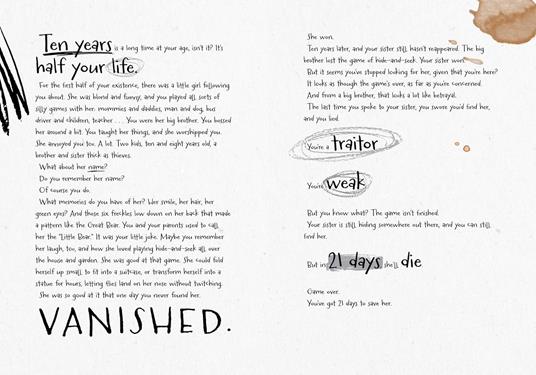 Ten years is a long time at your age, isn't it? It's
half your life.
For the first half of your existence, there was a little girl following
you about. She was blond and funny, and you played all sorts of
silly games with her: mommies and daddies, man and dog, bus
driver and children, teacher . . . You were her big brother. You bossed
her around a bit. You taught her things, and she worshipped you.
She annoyed you too. A lot. Two kids, ten and eight years old, a
brother and sister thick as thieves.
What about her name?
Do you remember her name?
Of course you do.
What memories do you have of her? Her smile, her hair, her
green eyes? And those six freckles low down on her back that made
a pattern like the Great Bear. You and your parents used to call
her the "Little Bear." It was your little joke. Maybe you remember
her laugh, too, and how she loved playing hide-and-seek all over
the house and garden. She was good at that game. She could fold
herself up small to fit into a suitcase, or transform herself into a
statue for hours, letting flies land on her nose without twitching.
She was so good at it that one day you never found her.
VANISHED.
She won.
Ten years later, and your sister still hasn't reappeared. The big
brother lost the game of hide-and-seek. Your sister won.
But it seems you've stopped looking for her, given that you're here?
It looks as though the game's over, as far as you're concerned.
And from a big brother, that looks a lot like betrayal.
The last time you spoke to your sister, you swore you'd find her,
and you lied.
You're a traitor
You're weak
But you know what? The game isn't finished.
Your sister is still hiding somewhere out there, and you can still
find her.
But in 21 days she'll die
Game over.
You've got 21 days to save her.